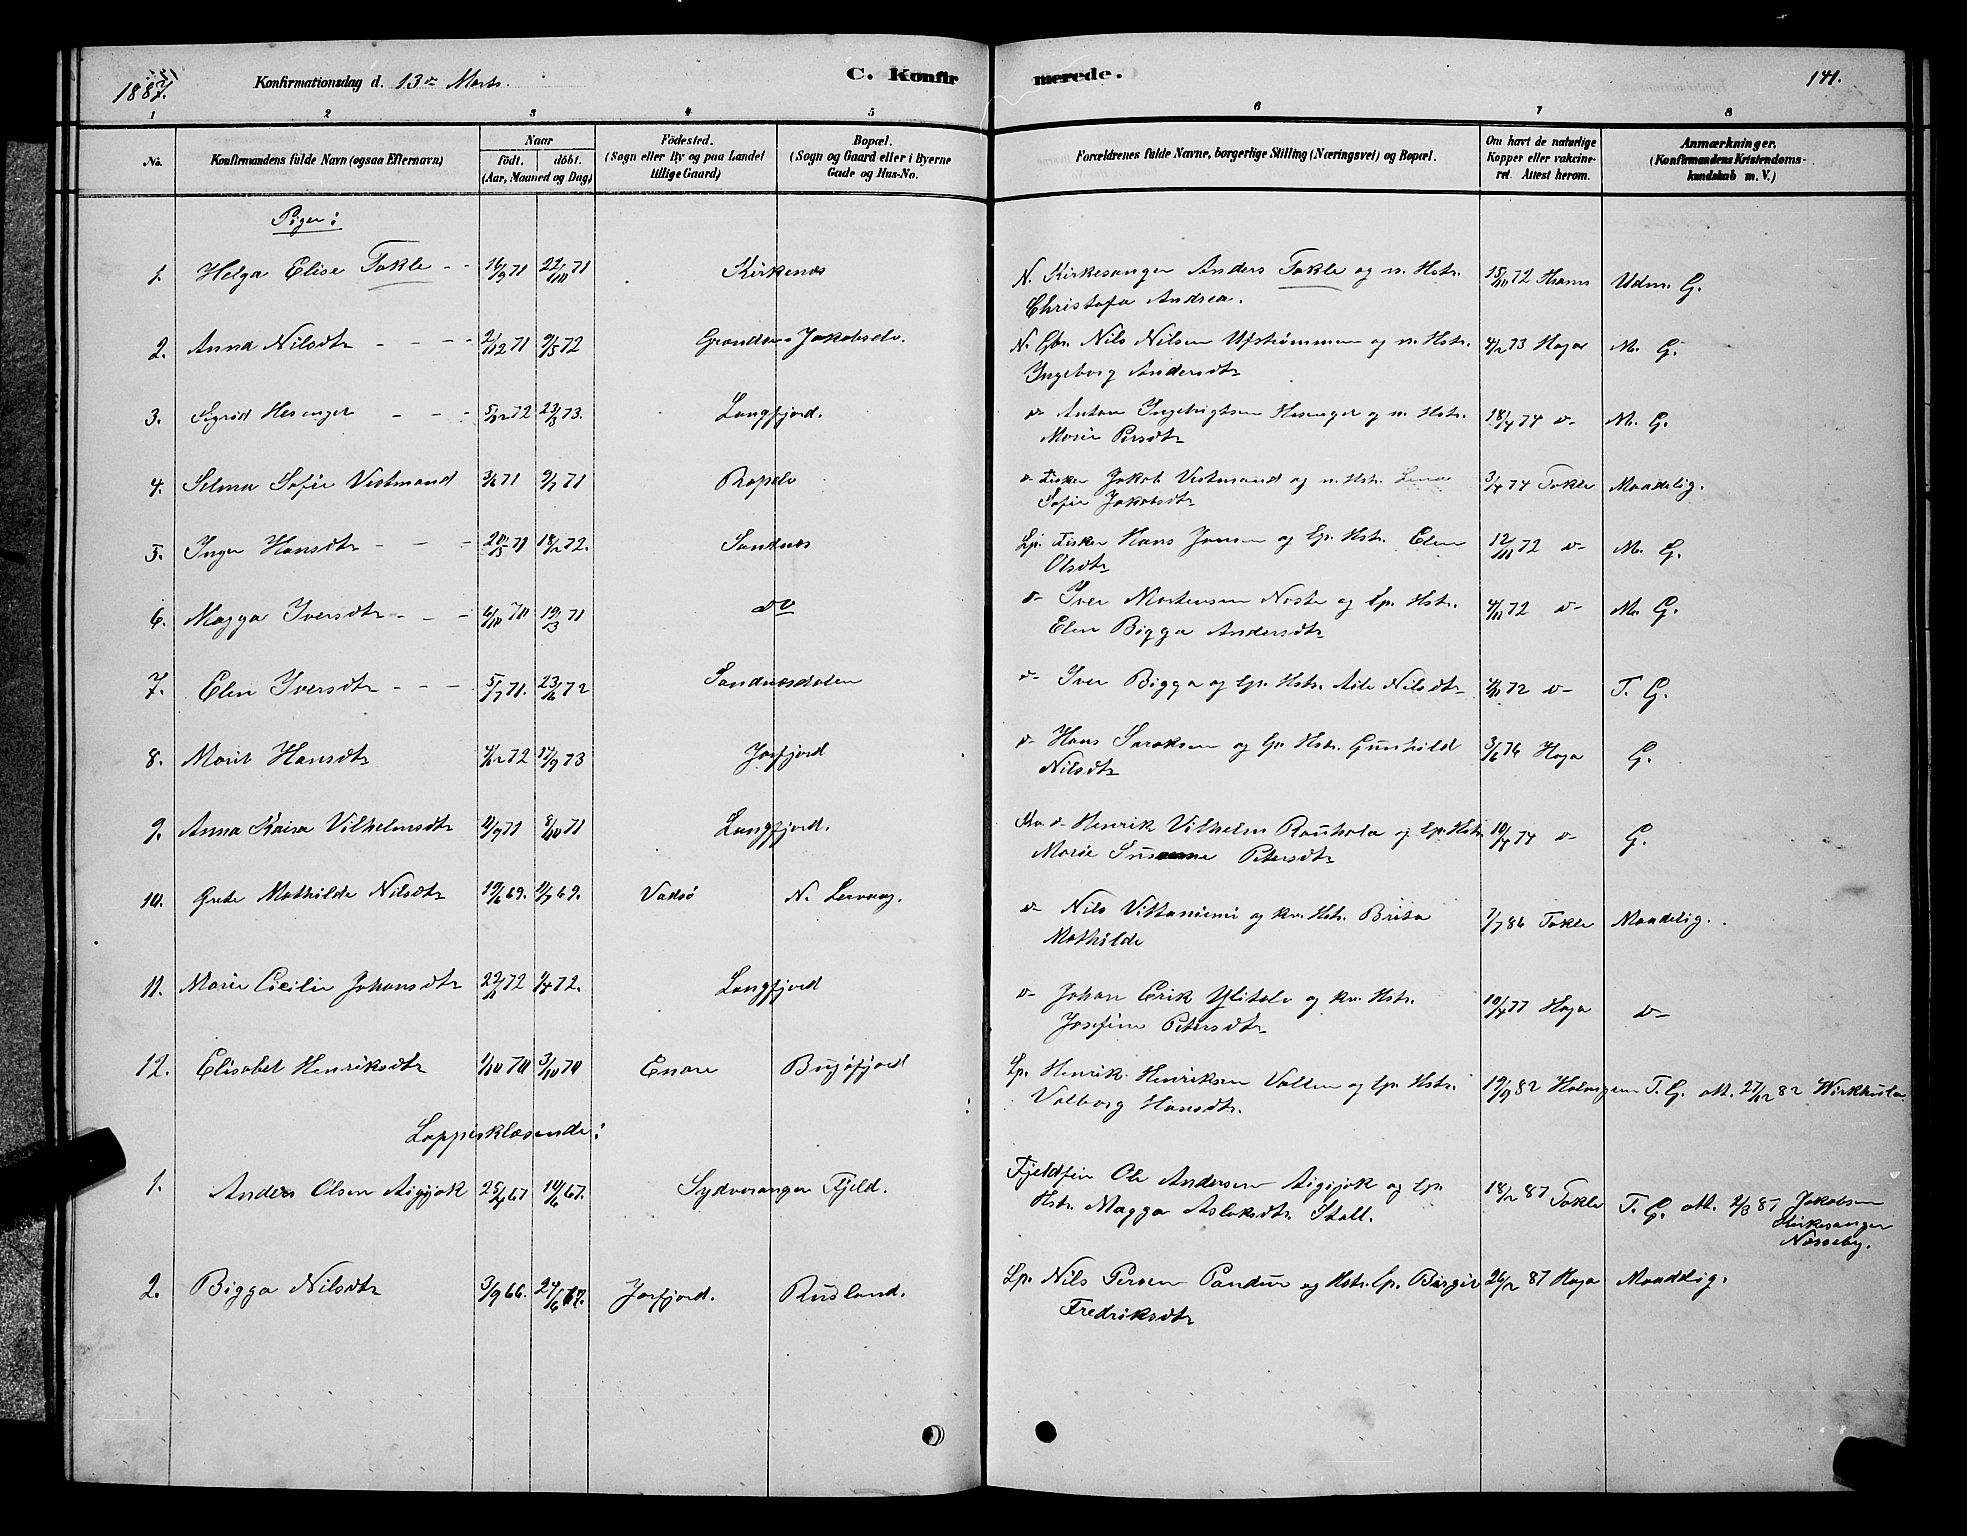 1887. Konfirmationsdag d. 13de Marts. C. Konfir merede. 141.
1 2 3 4 5 6 7 8
No. Konfirmandens fulde Navn (ogsaa Efternavn) Naar födt. döbt. (Aar, Maaned og Dag) Födested. (Sogn eller By og paa Landet tillige Gaard) Bopæl. (Sogn og Gaard eller i Byerne Gade og Hus-No. Forældrenes fulde Navne, borgerlige Stilling (Næringsvei) og Bopæl. Om havt de naturlige Kopper eller vakcineret. Attest herom. Anmærkninger. (Konfirmandens Kristendomskundskab m. V.)
Piger:
1. Helga Elise Takle - - 16/9 71 22/10 71 Kirkenæs N. Kirkesanger Anders Takle og n. Hstr. 15/11 72 Udm. G.
Christofa Andrea.
2. Anna Nilsdtr - - - 2/12 71 9/5 72 Jakobselv. N. Gbr. Nils Nilsen og n. Hstr. 4/2 73 Haga M. G.
Ingeborg Andersdtr
3. Sigrid Hesenger - - - 5/12 72 23/3 73. Langfjord. v- Anton Ingebrigtsen Hesenger og n. Hstr. 18/4 74 v- M. G.
Marie Persdtr
4. Selma Sofie Vestmand 3/6 71 9/7 71 Ropelv v- Fisker Jakob Vestmand og n. Hstr. Lena 3/4 74 Takle Maadelig.
Sofie Jakobsdtr
5. Inger Hansdtr - - - 20/5 71 18/2 72. Sandnæs Lp. Fisker Hans Jonsen og lp. Hstr. Elen 12/10 72 v- M. G.
Olsdtr
6. Magga Iversdtr - - - 6/10 70 19/3 71 do v- Iver Mortensen Noste og lp. Hstr. 4/11 72 v- M. G.
Elen Bigga Andersdtr
7. Elen Iversdtr - - - 5/7 71. 23/6 72 Sandnæsdalen v- Iver Bigga og lp. Hstr. Aile Nilsdtr 72 v- T. G.
8. Marit Hansdtr 72 17/9 73 Jarfjord v- Hans Saraksen og lp. Hstr. Gunhild 3/6 76 Haga G.
Nilsdtr
9. Anna Kaisa Vilhelmsdtr 11/9 71 8/10 71 Langfjord. Kv. v- Henrik Vilhelm Rauhala og lp. Hstr. 10/4 74 v- G.
Marie Susanne Petersdtr
10. Grete Mathilde Nilsdtr 19/6 69. 11/7 69. Vadsö N. Leirvaag. v- Nils Vittaniemi og kv. Hstr. Brita 7/7 86 Takle Maadelig.
Mathilde
11. Marie Cecilie Johansdtr 22/1 72 1/4 72. Langfjord v- Johan Erik Ylitalo og kv. Hstr. 10/4 77 Haga v-
Josefine Petersdtr
12. Elisabet Henriksdtr 1/10 70 3/10 70 Enare Bugöfjord Lp. Henrik Henriksen Vallen og lp. Hstr. 19/9 82 Holmgren T. G. att. 27/12 82 Wirkkula
Valborg Hansdtr.
Lappisklæsende:
1. Anders Olsen Aigijok 25/4 67 10/6 67. Sydvaranger Fjeld. Fjeldfin Ole Andersen Aigijok og lp. 18/2 87 Takle T. G. att. 2/3 87 Jakobsen
Hstr. Magga Aslaksdtr. Stall. Kirkesanger
Næsseby.
2. Bigga Nilsdtr 3/9 66. 24/6 67. Jarfjord. Rusland. Lp. Nils Persen og Hstr. lp. Birgit 26/2 87 Haga Maadelig.
Fredriksdtr